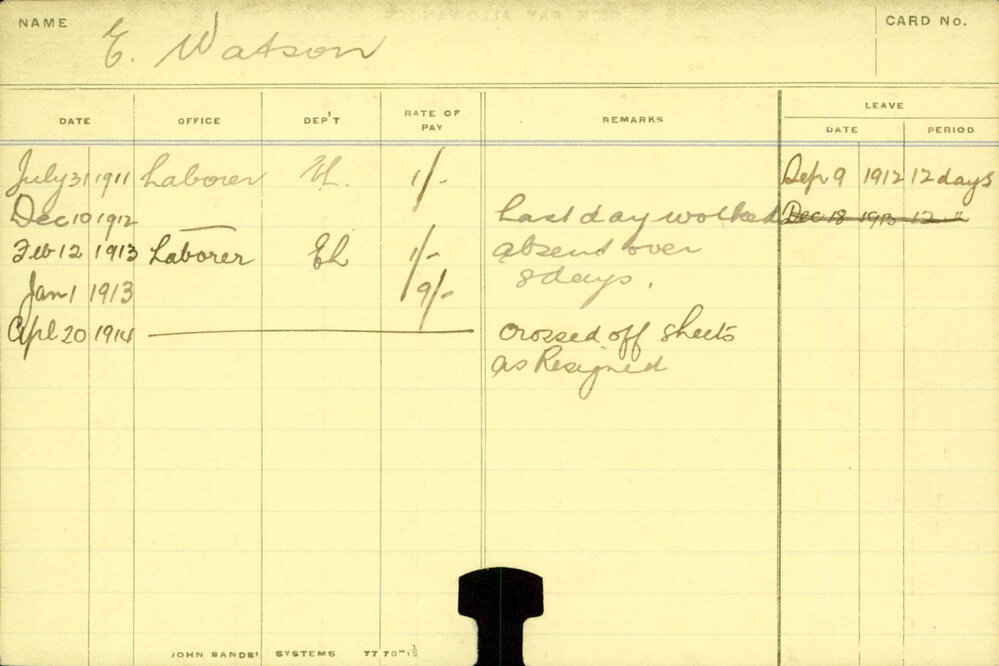 NAME E. Watson CARD No.
DATE OFFICE DEP'T RATE OF PAY REMARKS LEAVE
DATE PERIOD
July 31 1911 Laborer 1/- Sep 9 1912 12 days
Dec 10 1912 — Last day worked Dec 18 1913 12 "
Feb 12 1913 Laborer EL 1/- absent over
Jan 1 1913 /9/- 8 days.
Apl 20 1914 crossed off sheets
as Resigned
JOHN SANDS' SYSTEMS 77 70